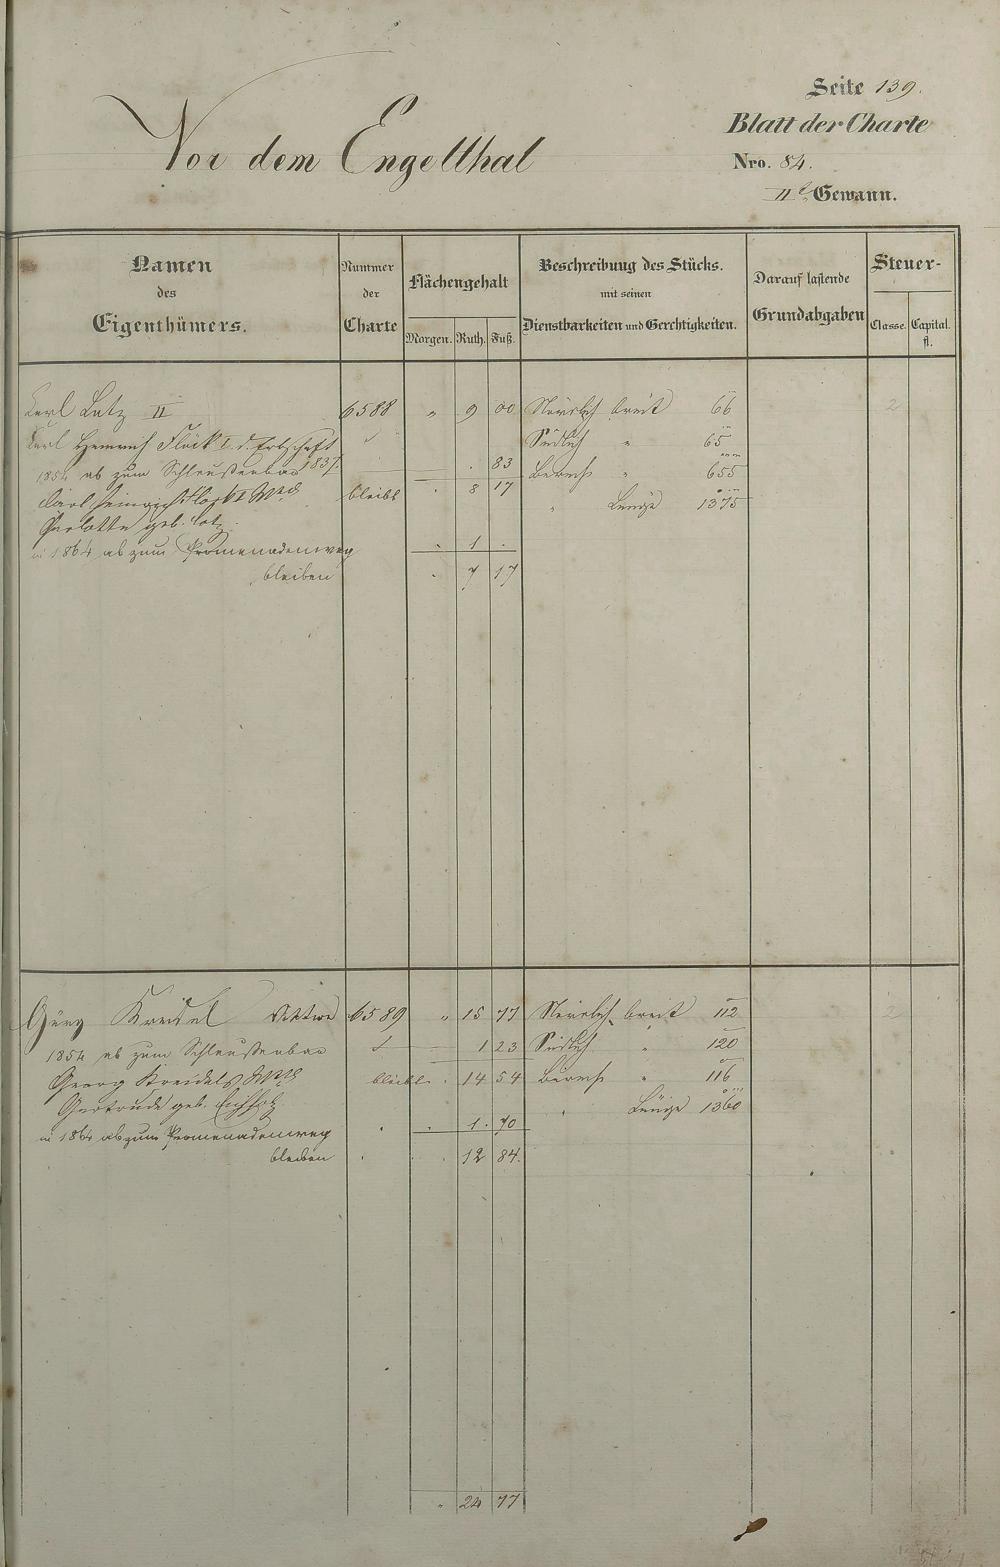 Seite 139.
Vor dem Engelthal
Blatt der Charte
Nro. 84.
II. Gewann.
Namen des Eigenthümers.
Nummer der Charte
Flächengehalt
Morgen. Ruth. Fuß.
Beschreibung des Stücks. mit seinen Dienstbarkeiten und Gerechtigkeiten.
Darauf lastende Grundabgaben
Steuer-
Classe. Capital. fl.
Karl Lotz II 6588 " 9 00 Nördlich breit 66 2
Karl Heinrich Flöck I. d. Erbschaft 1837. Südlich " 65
1854 ab zum Schleußenbau . 83 " 655
Carl Heinrich Flöck I bleibt . 8 17 " Länge 1375
Charlotte geb. Lotz
in 1864 ab zum Promenadenweg . 1 .
bleiben . 7 17
Georg Kreidel Wittwe 6589 " 15 77 Nördlich breit 112 2
1854 ab zum Schleußenbau 1 23 Südlich " 120
Georg Kreidels bleibt . 14 54 " 116
Gertrude geb. " Länge 1360
in 1864 ab zum Promenadenweg . 1 . 70
bleiben . 12 84.
" 24 77